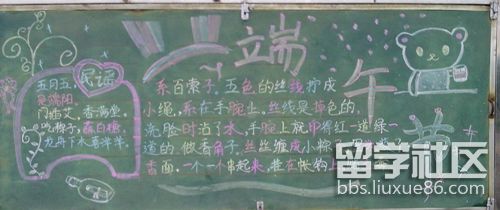 端
午
民谣
五月五,
是端阳。
门插艾,
香满堂。
吃粽子,
蘸白糖。
龙舟下水喜洋洋。
系百索子。五色的丝线拧成
小绳,系在手腕上。丝线是掉色的,
洗脸时沾了水,手腕上就印得红一道绿一
道的。做香角子。丝线缠成小粽
香面,一个一个串起来,挂在帐钩上
留学社区
bbs.liuxue86.com